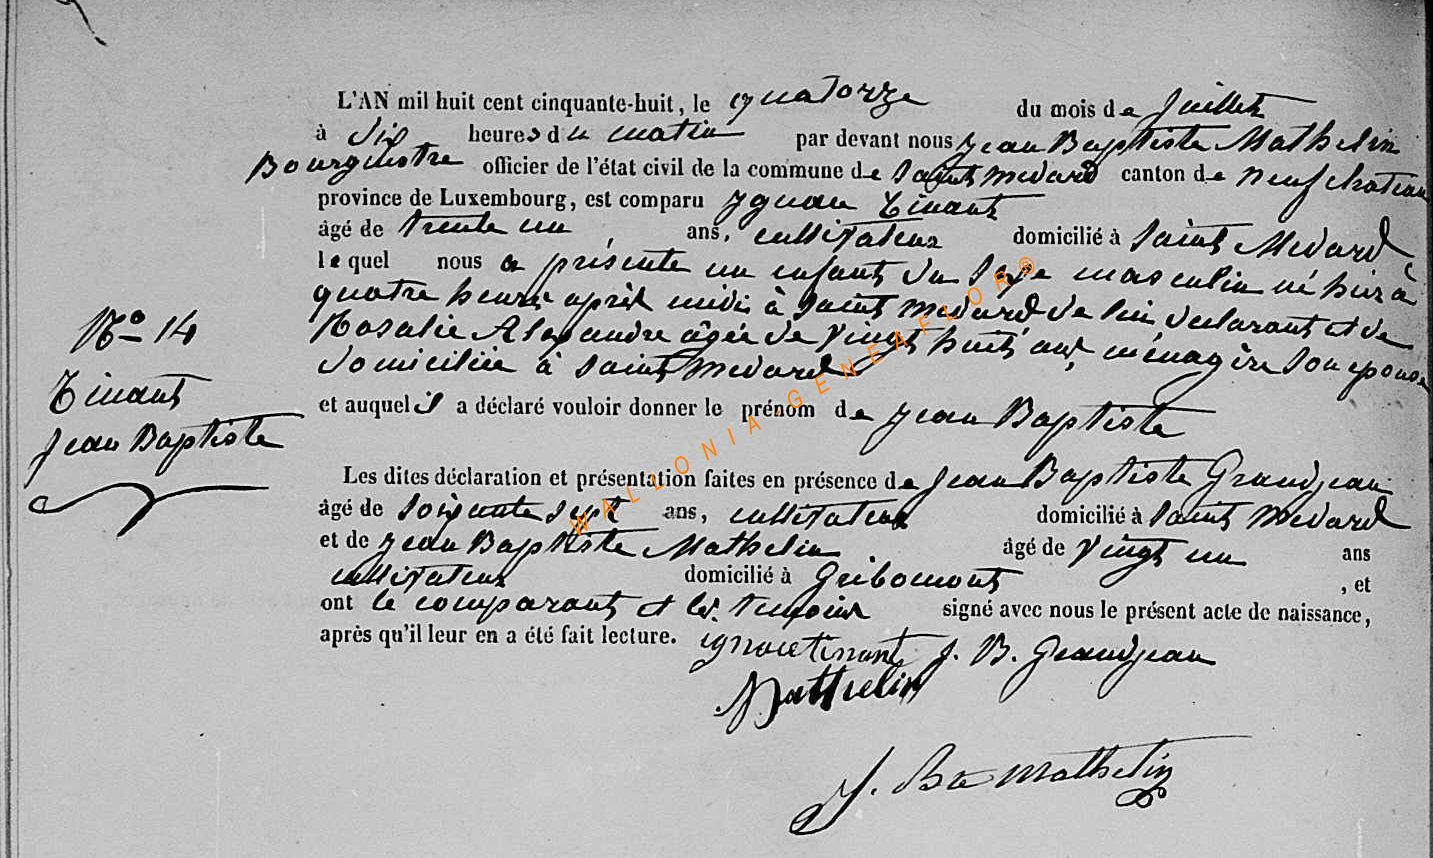 L'AN mil huit cent cinquante-huit, le quatorze du mois de Juillet
à Six heures du matin par devant nous Jean Baptiste Mathelin
Bourgmestre officier de l'état civil de la commune de Saint Medard canton de Neufchateau
province de Luxembourg, est comparu Tinant
âgé de trente un, ans, cultivateur domicilié à Saint Medard,
lequel nous a présenté un enfant du Sexe masculin né hier à
quatre heures après midi à Saint Medard de lui déclarant et de
Rosalie Alexandre âgée de Vingt huit ans ménagère Son épouse
domiciliée à Saint Medard
et auquel il a déclaré vouloir donner le prénom de Jean Baptiste
Les dites déclaration et présentation faites en présence de Jean Baptiste Grandjean
âgé de Soixante Sept ans, cultivateur domicilié à Saint Medard
et de Jean Baptiste Mathelin âgé de Vingt un ans
cultivateur domicilié à Gribomont, et
ont le comparant et les témoins signé avec nous le présent acte de naissance,
après qu'il leur en a été fait lecture. tinant J. B. Grandjean
Mathelin
J. Bte Mathelin
No 14
Tinant
Jean Baptiste
WALLONIA-GENEAFLOR®